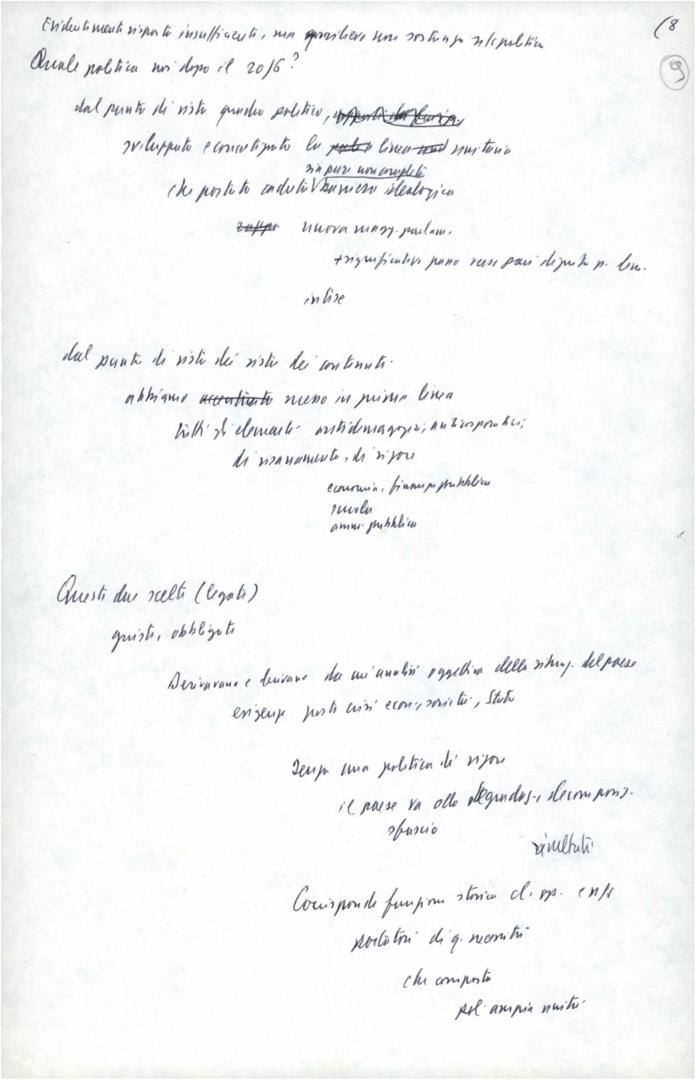 (8
9
Evidentemente risposte insufficienti, ma quasi non sostanza ns politica
Quale politica noi dopo il 20/6?
dal punto di vista quadro politico,
sviluppato e concretizzato la linea unitaria
sia pure non completa
che portato caduta barriera ideologica
nuova magg. parlam.
+ significativi passi verso pari dignità p.
intese
dal punto di vista dei contenuti
abbiamo accentuato messo in prima linea
tutti gli elementi antidemagogici, anticorporativi,
di risanamento, di rigore
economia, finanza pubblica
scuola
amm. pubblica
Queste due scelte (legate)
giuste, obbligate
Derivavano e derivano da un'analisi oggettiva della situaz. del paese
esigenze poste crisi econ., società, Stato
Senza una politica di rigore
il paese va alla degradaz., decomposiz.
sfascio
risultati
Corrisponde funzione storica cl. op. e
portatori di q. necessità
che comporta
pol. ampia unità